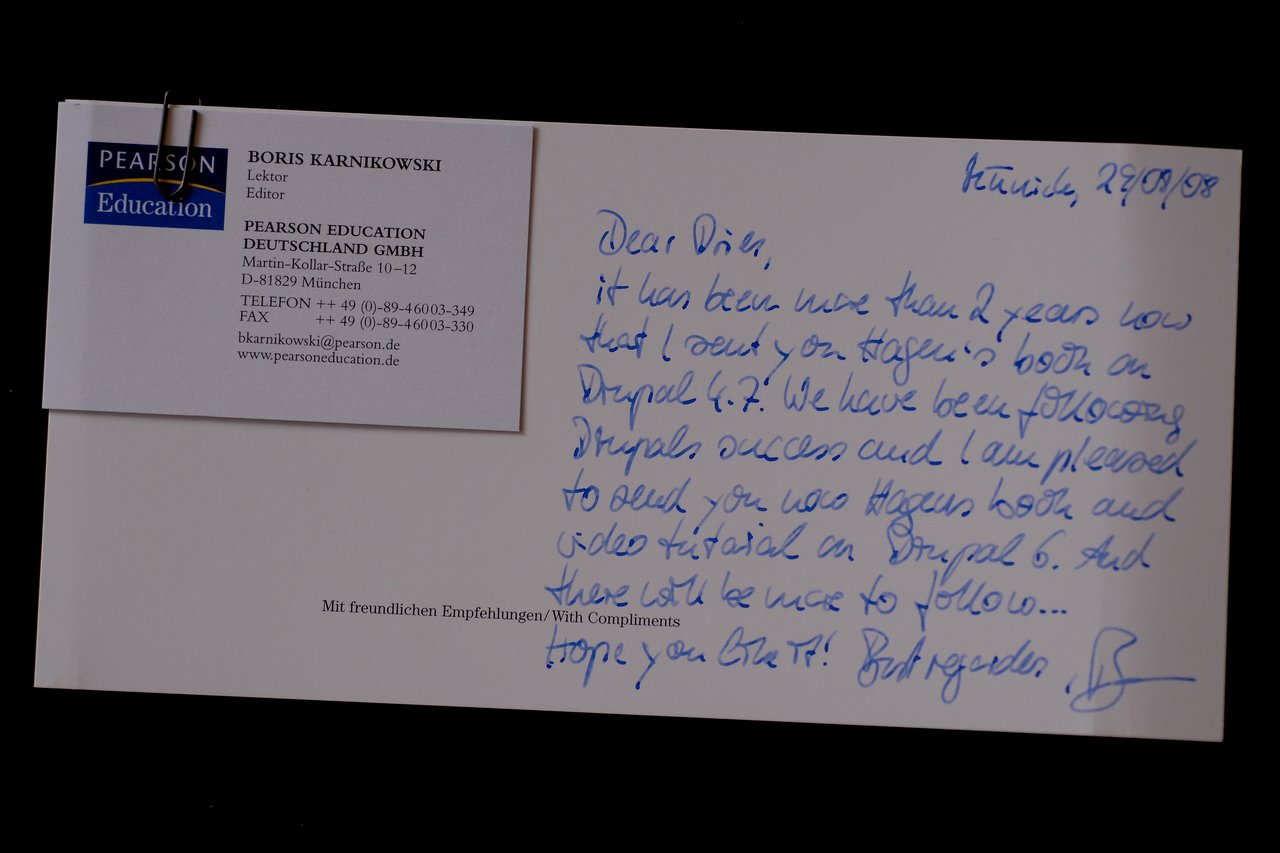 PEARSON
Education
BORIS KARNIKOWSKI
Lektor
Editor
PEARSON EDUCATION
DEUTSCHLAND GMBH
Martin-Kollar-Straße 10–12
D-81829 München
TELEFON ++ 49 (0)-89-46003-349
FAX ++ 49 (0)-89-46003-330
bkarnikowski@pearson.de
www.pearsoneducation.de
Mit freundlichen Empfehlungen/With Compliments
Munich, 29/08/08
Dear Dries,
it has been more than 2 years now
that I sent you Hagen's book on
Drupal 4.7. We have been following
Drupals success and I am pleased
to send you now Hagens book and
video tutorial on Drupal 6. And
there will be more to follow...
Hope you like it! Best regardes